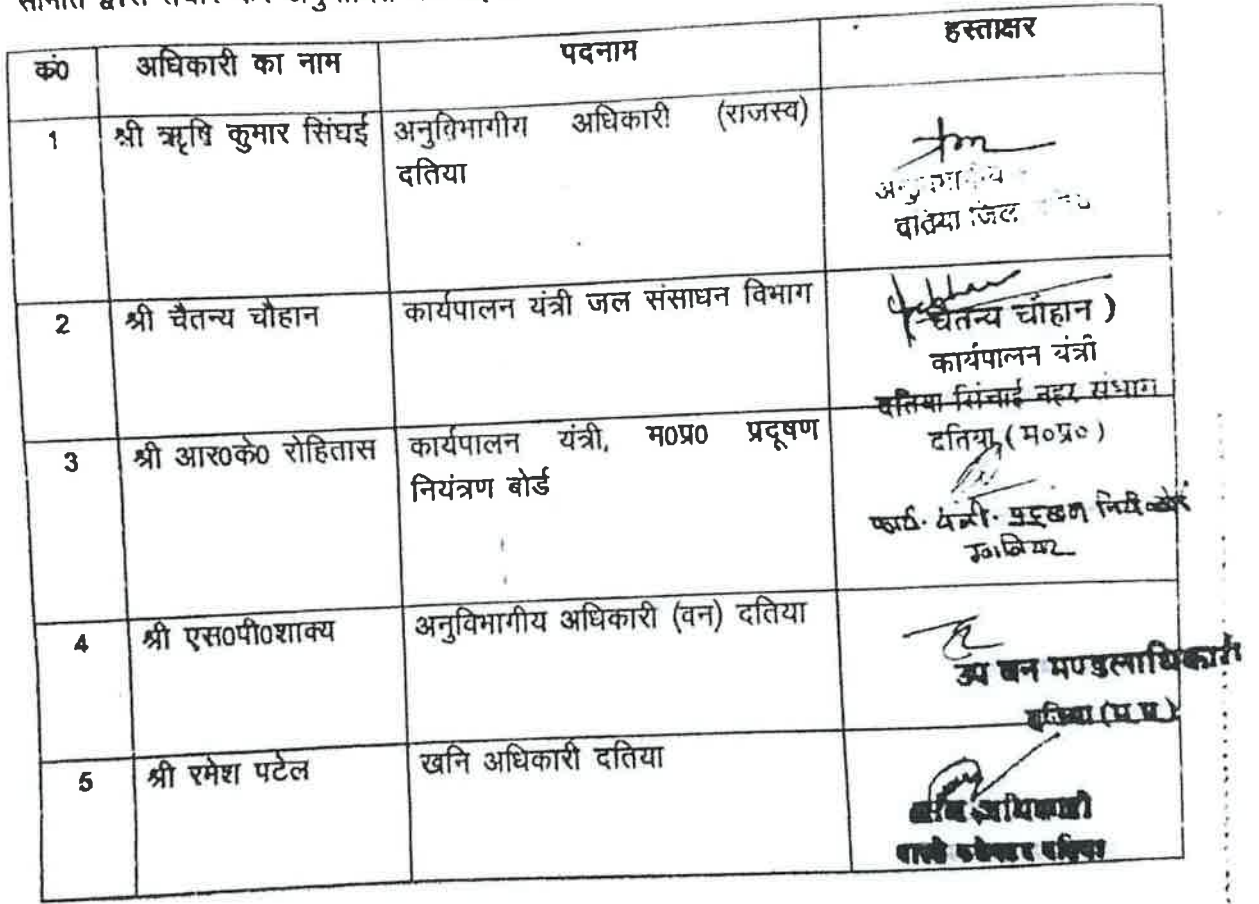 समिति द्वारा तैयार कर
कं0 अधिकारी का नाम पदनाम हस्ताक्षर
1 श्री ऋषि कुमार सिंघई अनुविभागीय अधिकारी (राजस्व)
दतिया
दतिया जिला
2 श्री चैतन्य चौहान कार्यपालन यंत्री जल संसाधन विभाग
(चैतन्य चौहान )
कार्यपालन यंत्री
दतिया सिंचाई नहर संभाग
दतिया (म०प्र०)
3 श्री आर0के0 रोहितास कार्यपालन यंत्री, म0प्र0 प्रदूषण
नियंत्रण बोर्ड
ग्वालियर
4 श्री एस0पी0शाक्य अनुविभागीय अधिकारी (वन) दतिया
उप वन मण्डलाधिकारी
दतिया (म.प्र.)
5 श्री रमेश पटेल खनि अधिकारी दतिया